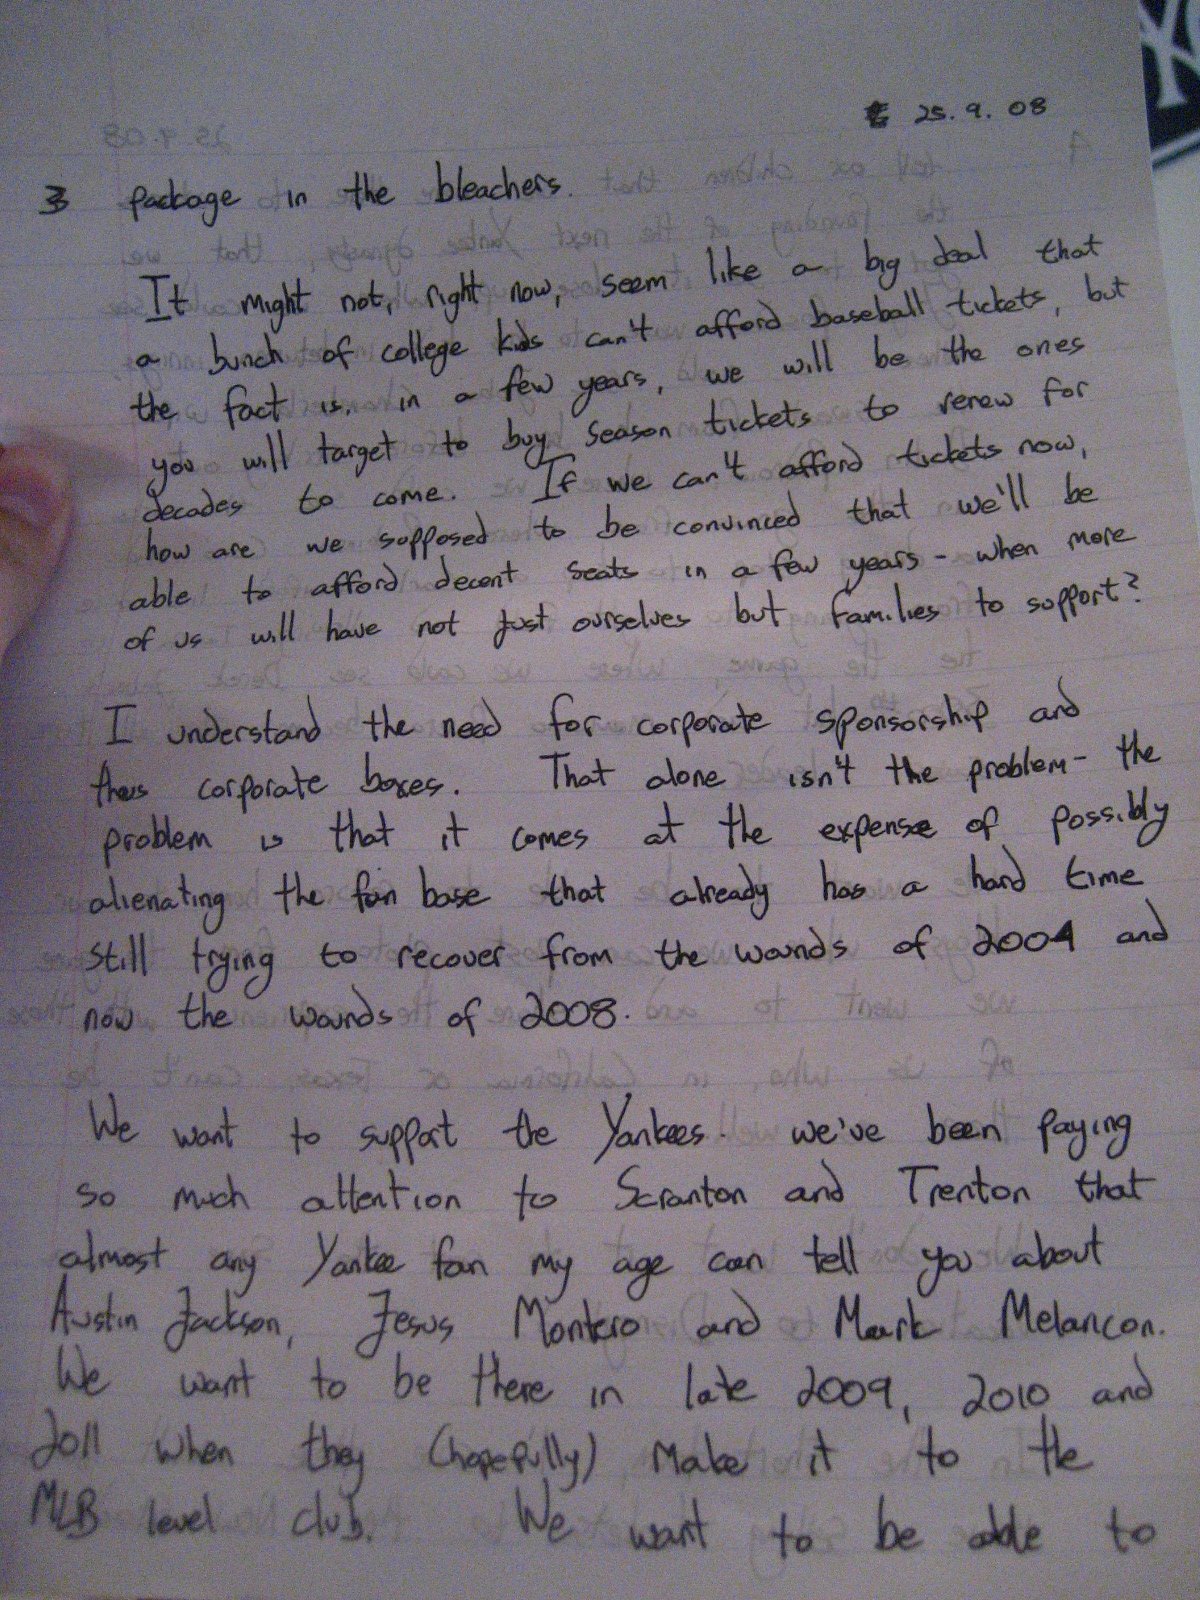 25. 9. 08
3 package in the bleachers.
It might not, right now, seem like a big deal that
a bunch of college kids can't afford baseball tickets, but
the fact is, in a few years, we will be the ones
you will target to buy season tickets to renew for
decades to come. If we can't afford tickets now,
how are we supposed to be convinced that we'll be
able to afford decent seats in a few years - when more
of us will have not just ourselves but families to support?
I understand the need for corporate sponsorship and
thus corporate boxes. That alone isn't the problem - the
problem is that it comes at the expense of possibly
alienating the fan base that already has a hard time
still trying to recover from the wounds of 2004 and
now the wounds of 2008.
We want to support the Yankees. We've been paying
so much attention to Scranton and Trenton that
almost any Yankee fan my age can tell you about
Austin Jackson, Jesus Montero and Mark Melancon.
We want to be there in late 2009, 2010 and
2011 when they (hopefully) make it to the
MLB level club. We want to be able to